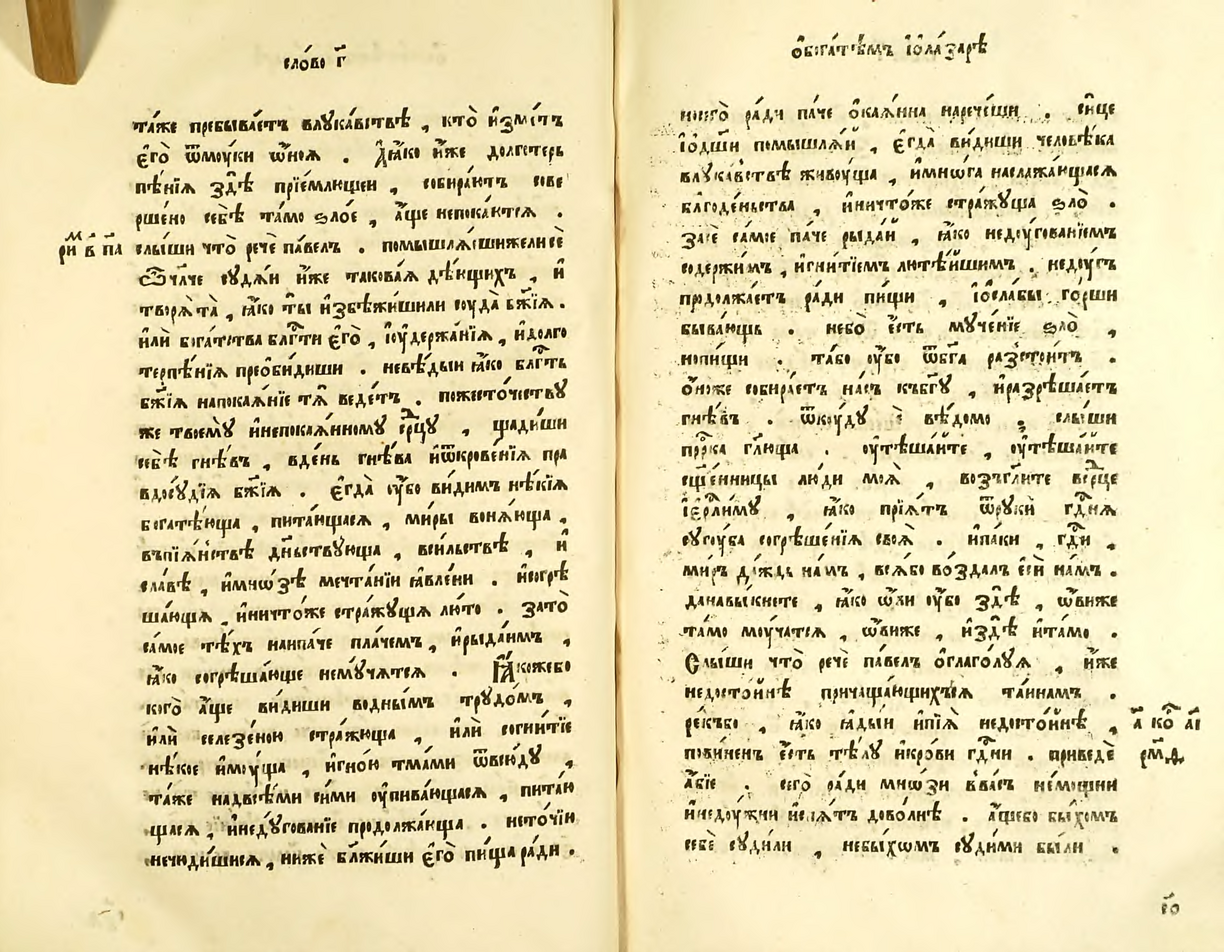 сло́во г҃
та́же пребыва́етъ влꙋка́вствѣ , кто̀ и҆зме́тъ
є҆го̀ ѿмꙋ́ки ѡ҆ноѧ . ꙗ҆́ко и҆́же долготерь
пѣ́нїѧ здѣ̀ прїе́млющеи , собира́ютъ сове
ршено себѣ̀ та́мо ѕло́е , а҆́ще непока́ютсѧ .
слы́ши что̀ речѐ па́велъ . помышлѧ́ешижелисѐ
ри в҃ па
ѽчл҃че сꙋдѧ́и и҆́же такова́ѧ дѣ́ющихъ , и҆
творѧ̀та̀ , ꙗ҆́ко ты̀ и҆збѣжи́шили сꙋда̀ бж҃їѧ .
и҆лѝ бога́тства блг҃ти є҆го̀ , і҆ꙋдержа́нїѧ , и҆долго
терпѣ́нїѧ преѻби́диши . невѣ́дыи ꙗ҆́ко блг҃ть
бж҃їѧ напокаѧ́нїе тѧ̀ веде́тъ . пожесто́честву
же твоемꙋ̀ и҆непокаѧ́нномꙋ ср҃цꙋ , щади́ши
себѣ̀ гнѣ́въ , вде́нь гнѣ́ва и҆ѿкрове́нїѧ пра
вдосꙋ́дїѧ бж҃їѧ . є҆гда̀ ᲂу҆́бо ви́димъ нѣ́кїѧ
богатѣ́юща , пита́ющаѧсѧ , ми́ры воня́юща ,
въпїѧ́нствѣ дн҃ьствꙋюща , всильствѣ , и҆
сла́вѣ , и҆мно́ѕѣ мечта́нїи ꙗ҆вле́ни . и҆согрѣ
ша́ющѧ , и҆ничто́же стра́жꙋщѧ лю́то . зато̀
само́е тѣ́хъ наипа́че пла́чемъ , и҆рыда́имъ ,
ꙗ҆́ко согрѣша́юще немꙋ́чѧтсѧ . Ꙗ҆́кожебо
кого̀ а҆́ще ви́диши во́днымъ трꙋдо́мъ ,
и҆лѝ селезе́ною стра́жюща , и҆лѝ согни́тїе
нѣ́кое и҆мꙋ́ща , и҆гно́ю тма́ми ѿвсю́дꙋ ,
та́же надвсѣ́ми си́ми ᲂу҆пива́ющасѧ , пита́ю
щасѧ , и҆недꙋ́гованїе продолжа́юща . неточїю
нечюди́шисѧ , нижѐ бл҃жи́ши є҆го̀ пи́ща ра́ди .
ѻ҆бога́тѣмъ і҆ѻла́зарѣ
но́сего̀ ра́ди па́че ѻ҆кая́нна нарече́ши . си́це
і҆ѻдш҃и помышлѧ́й , є҆гда̀ ви́диши человѣ́ка
влꙋка́вствѣ живꙋ́ща , и҆мнѡ́га наслажа́ющасѧ
благоде́ньства , и҆ничто́же стра́жꙋща ѕло̀ .
засѐ само́е па́че рыда́й , ꙗ҆́ко недꙋ́гованїемъ
содержи́мъ , и҆гни́тїемъ лютѣ́йшимъ . недꙋ́гъ
продолжа́етъ ра́ди пи́щи , і҆ѻсла́бы го́рши
быва́ющь . небо̀ є҆́сть мꙋче́нїе ѕло̀ ,
нопи́щи . та́бо ᲂу҆́бо ѿбг҃а разстои́тъ .
ѻ҆но́же собира́етъ на́съ къбг҃ꙋ , и҆разрѣша́етъ
гнѣ́въ . ѿкꙋ́дꙋ є҆̀ вѣ́домо ; слы́ши
пр҃рка гл҃юща . ᲂу҆тѣша́йте , ᲂу҆тѣша́йте
сщ҃е́нницы лю́ди моѧ̀ , возъгл҃ите вср҃це
і҆ер҃ли́мꙋ , ꙗ҆́ко прїѧ́тъ ѿрꙋкѝ гд҃нѧ
сꙋгꙋ́ба согрѣше́нїѧ своѧ̀ . и҆па́ки , гд҃и ,
ми́ръ да́ждь на́мъ , всѧ̀бо во́здалъ є҆сѝ на́мъ .
данавы́кнете , ꙗ҆́ко ѡ҆́ви ᲂу҆́бо здѣ̀ , ѡ҆́виже
та́мо мꙋ́чатсѧ , ѡ҆́виже , и҆здѣ̀ и҆та́мо .
Слы́ши что̀ речѐ па́велъ ѻ҆глаго́лꙋѧ , и҆́же
недосто́йнѣ причаща́ющихъсѧ та́инамъ .
реко́бо , ꙗ҆́ко ꙗ҆ды́и и҆пїѧ̀ недосто́йнѣ ,
пови́ненъ є҆́сть тѣ́лꙋ и҆кро́ви гд҃ни . приведѐ
а҃ ко҃ а҃і
рм҃д
а҆́бїе . сего̀ ра́ди мно́ѕи вва́съ не́мощни
и҆недꙋ́жни и҆спѧ́тъ дово́лнѣ . а҆́щебо бы́хомъ
себѐ сꙋди́ли , небы́хѡмъ сꙋди́ми бы́ли .